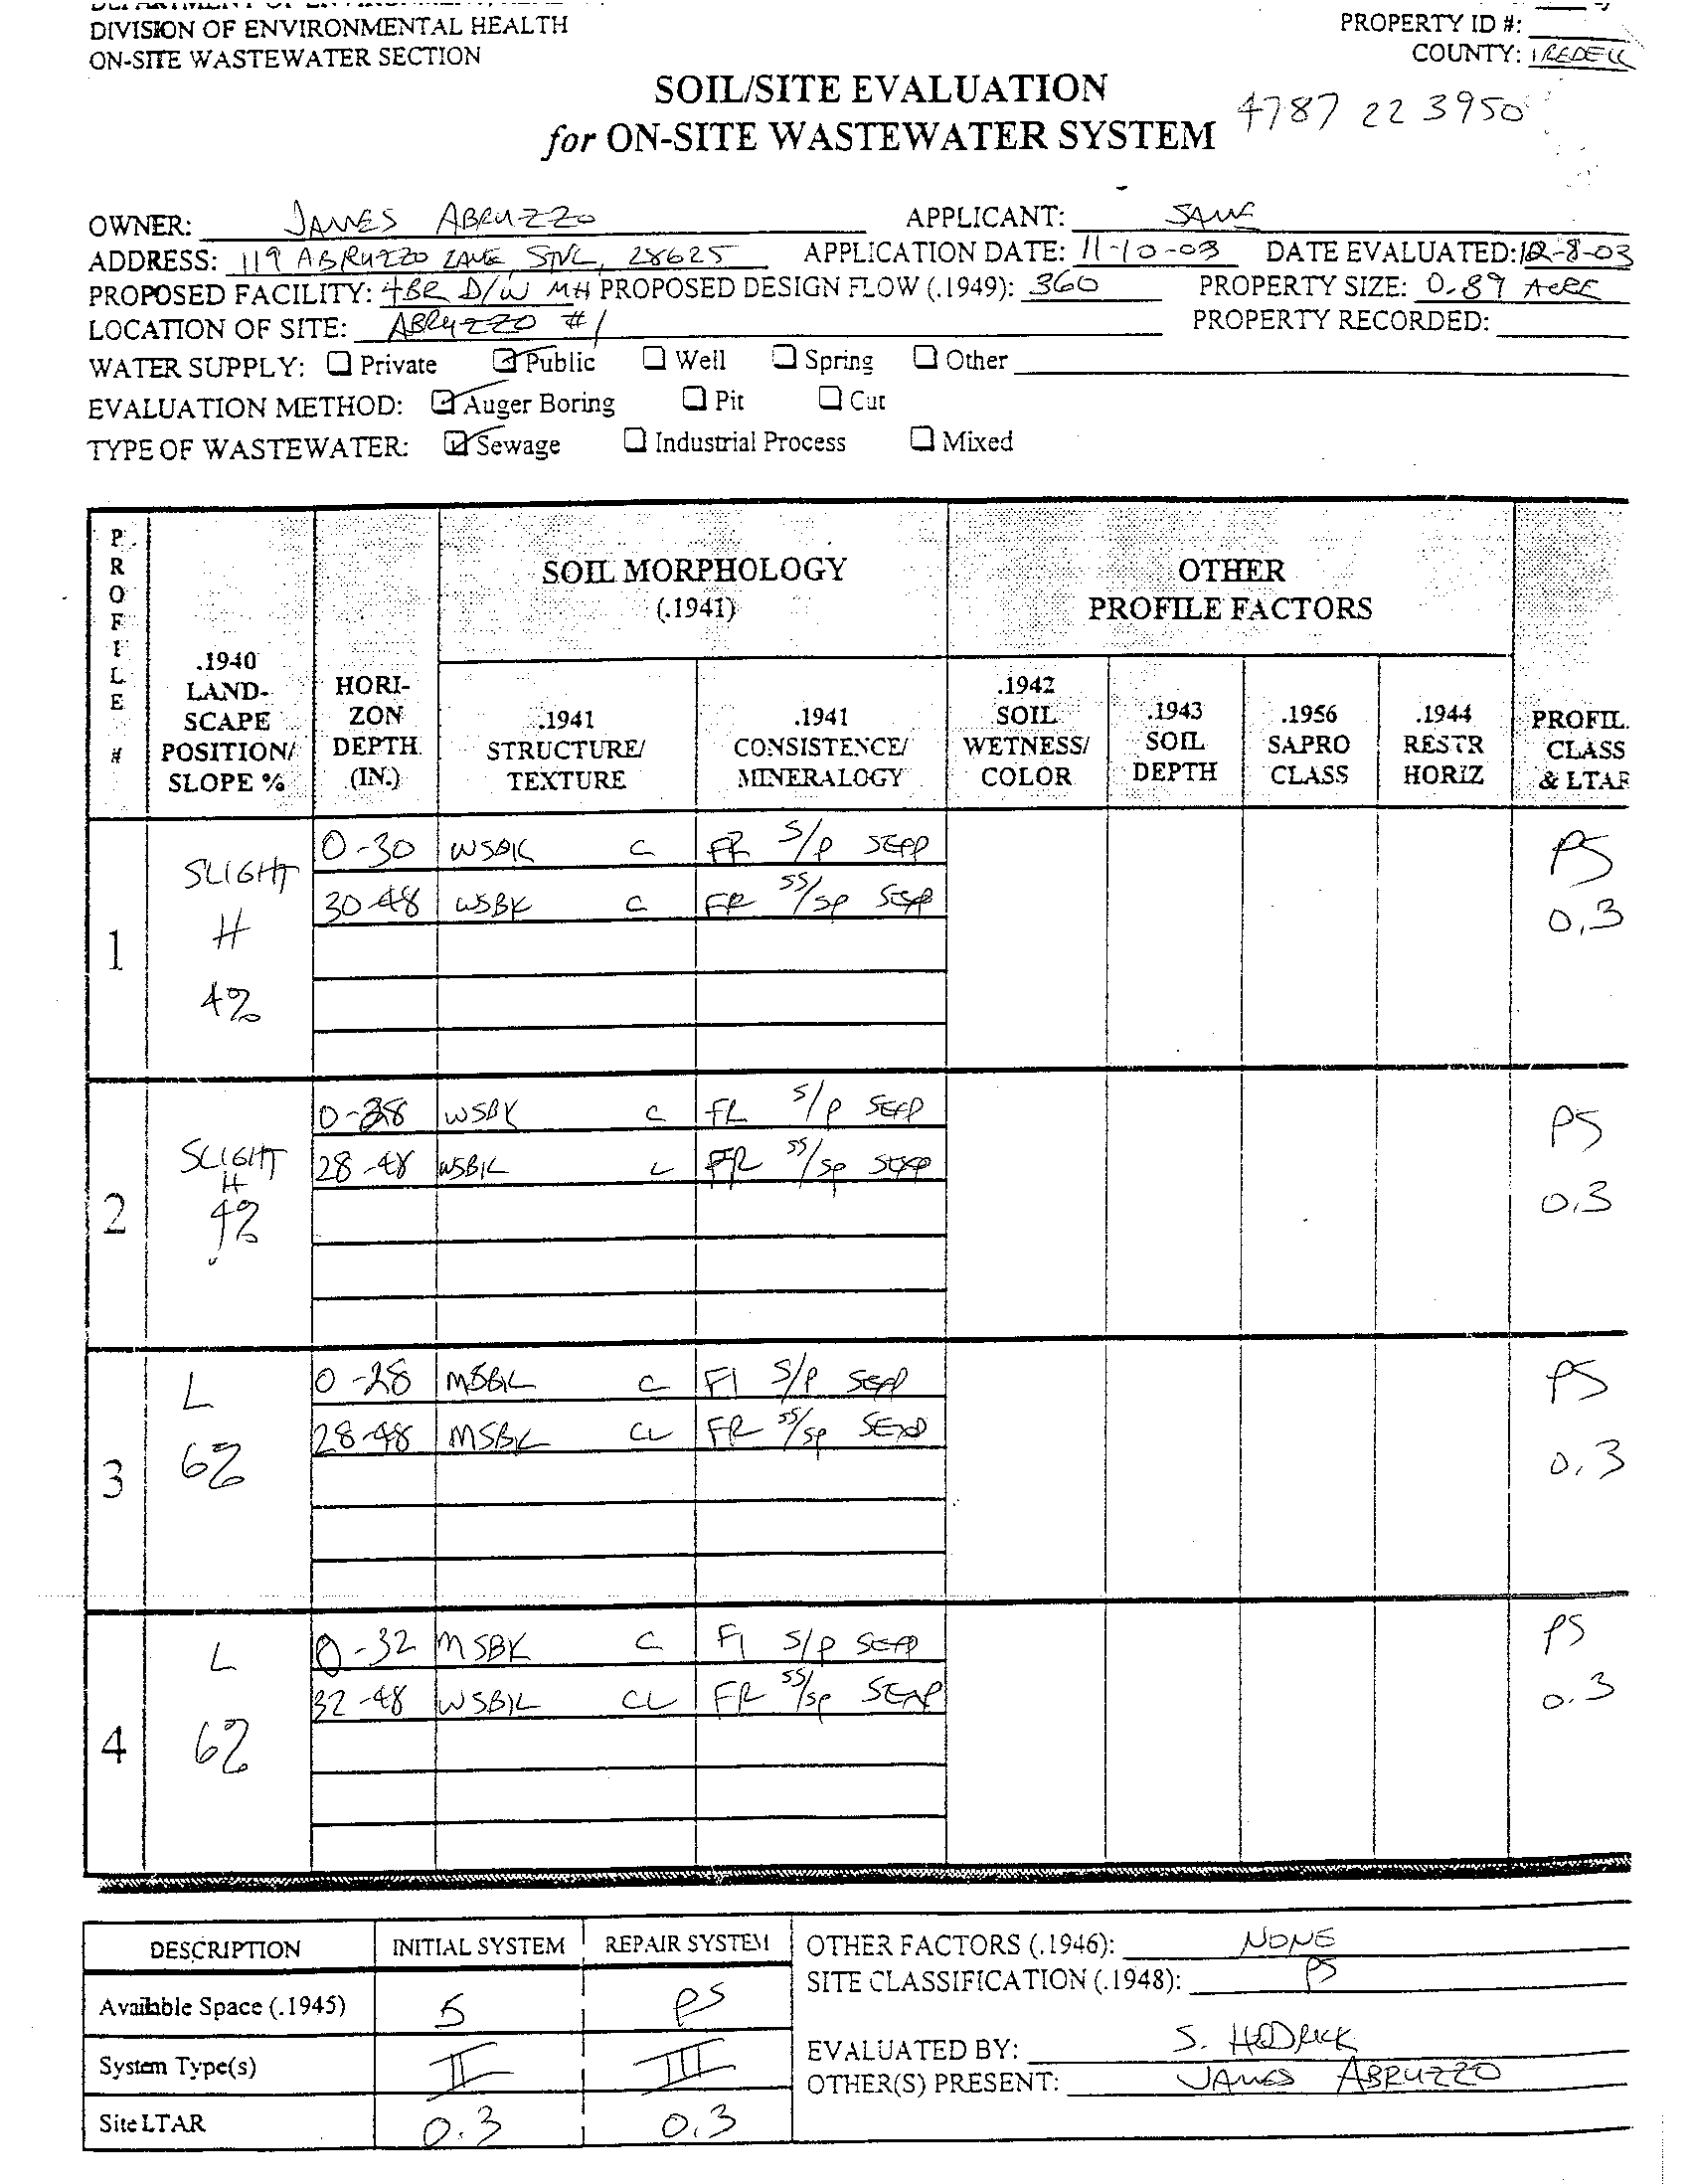 DIVISION OF ENVIRONMENTAL HEALTH
ON-SITE WASTEWATER SECTION
PROPERTY ID #:
COUNTY: IREDELL
SOIL/SITE EVALUATION
for ON-SITE WASTEWATER SYSTEM
4787 22 3950
OWNER: JAMES ABRUZZO APPLICANT: SAME
ADDRESS: 119 ABRUZZO LANE, SNL, 28625 APPLICATION DATE: 11-10-03 DATE EVALUATED: 12-8-03
PROPOSED FACILITY: 4BR D/W MH PROPOSED DESIGN FLOW (.1949): 360 PROPERTY SIZE: 0.89 ACRE
LOCATION OF SITE: ABRUZZO #1 PROPERTY RECORDED:
WATER SUPPLY: ☐ Private ☑ Public ☐ Well ☐ Spring ☐ Other
EVALUATION METHOD: ☑ Auger Boring ☐ Pit ☐ Cut
TYPE OF WASTEWATER: ☑ Sewage ☐ Industrial Process ☐ Mixed
PROFILE #
.1940 LAND-SCAPE POSITION/ SLOPE %
HORI-ZON DEPTH (IN.)
SOIL MORPHOLOGY (.1941)
.1941 STRUCTURE/ TEXTURE
.1941 CONSISTENCE/ MINERALOGY
OTHER PROFILE FACTORS
.1942 SOIL WETNESS/ COLOR
.1943 SOIL DEPTH
.1956 SAPRO CLASS
.1944 RESTR HORIZ
PROFIL. CLASS & LTAR
1 SLIGHT H 4%
0-30 WSBK C FR S/P SEXP
30-48 WSBK C FR SS/SP SEXP
PS 0.3
2 SLIGHT H 4%
0-28 WSBK C FR S/P SEXP
28-48 WSBK L FR SS/SP SEXP
PS 0.3
3 L 6%
0-28 MSBK C FI S/P SEXP
28-48 MSBK CL FR SS/SP SEXP
PS 0.3
4 L 6%
0-32 MSBK C FI S/P SEXP
32-48 WSBK CL FR SS/SP SEXP
PS 0.3
DESCRIPTION INITIAL SYSTEM REPAIR SYSTEM
Available Space (.1945) S PS
System Type(s) II III
Site LTAR 0.3 0.3
OTHER FACTORS (.1946): NONE
SITE CLASSIFICATION (.1948): PS
EVALUATED BY: S. HEDRICK
OTHER(S) PRESENT: JAMES ABRUZZO